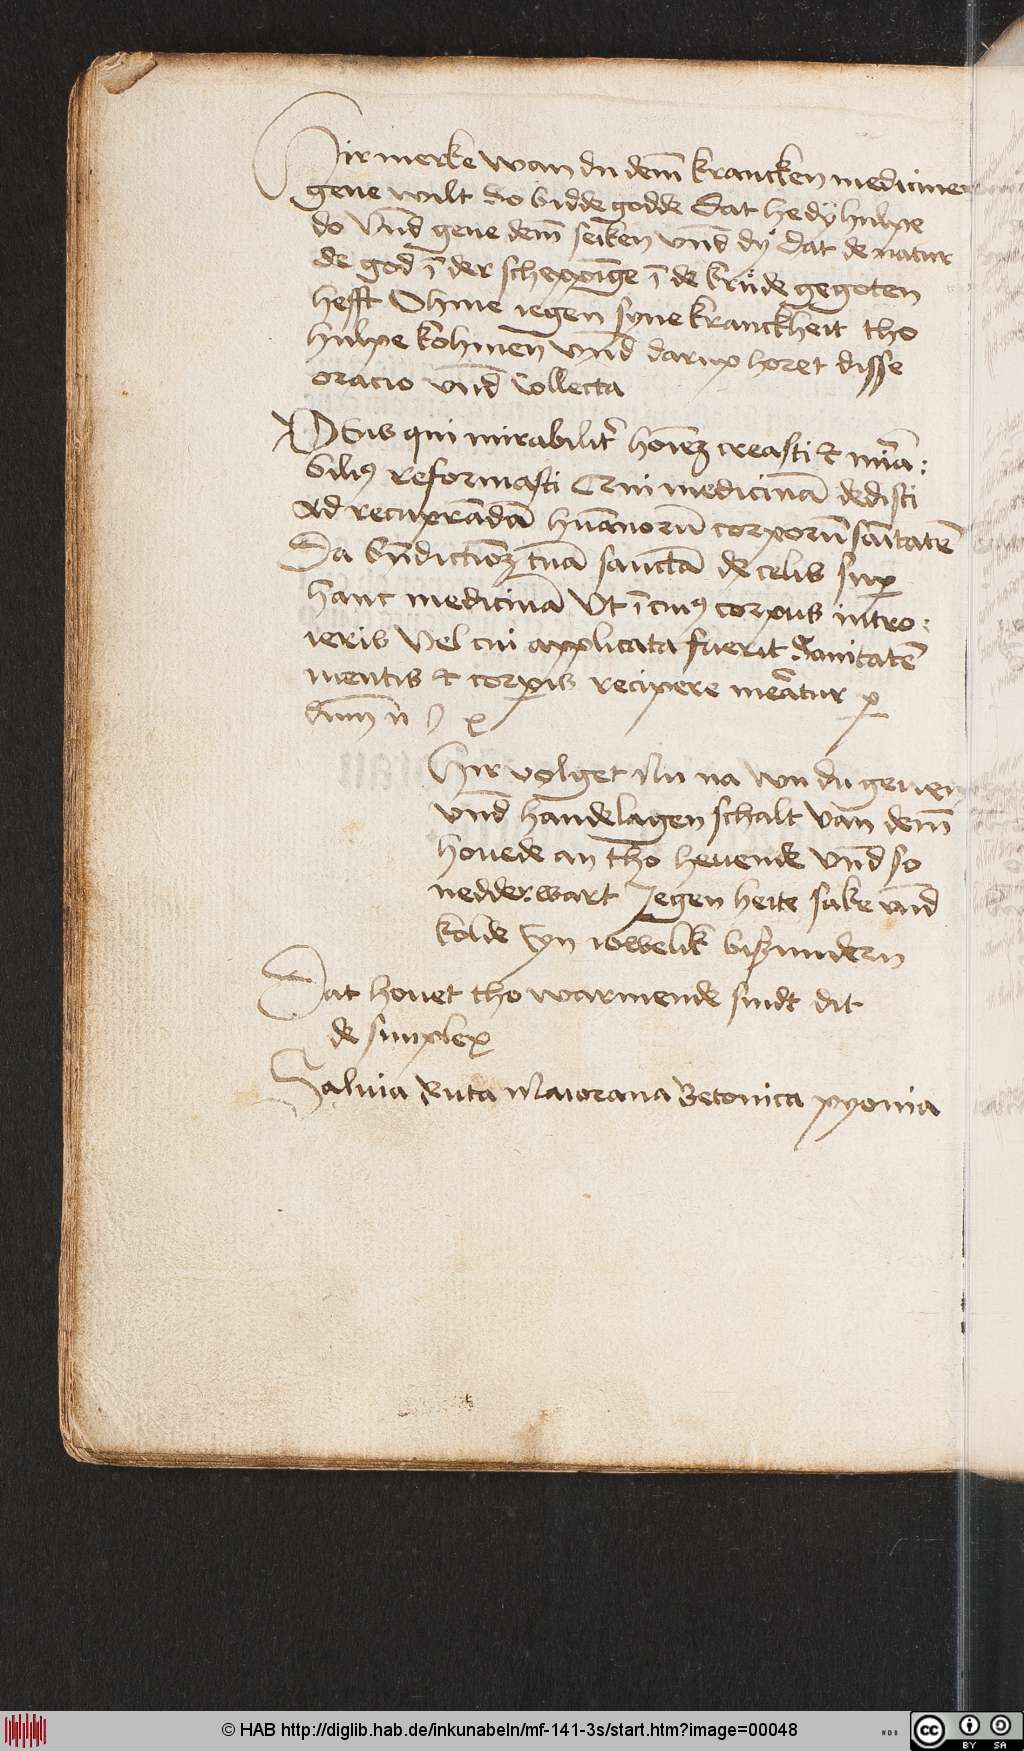 Hir merke wan du dem̄ krancken medicinen
geue wilt so bidde godde dat he dÿ hulpe
do vn̄d geue dem̄ seiken vn̄d dÿ dat de natur
de god ī der scheppīge ī de krüde gegoten
hefft Ohme iegen syne kranckheit tho
hulpe kohmen vn̄d darup horet disse
oracio vn̄d Collecta
DEus qui mirabilit̉ hoīeʒ creasti et mīra:
bilig reformasti Cui medicinā dedisti
Ad recuꝑandā huānorū corporū sāitatē
Da bn̄dictionēʒ tuā sanctā de celis suꝑ
hanc medicinā Vt ī cuiꝯ corpus intro:
ieris Vel cui applicata fuerit Sanitatē
mentis et corꝑis recipere mēatur ꝑ
dnm̄ n̄
Hir volget Nu na wu du geuen
vn̄d handelagen schalt van dem̄
houede an tho heuende vn̄d so
nedder.wart Jegen heite sake vn̄d
kolde Eyn iowelik biſzundern
Dat houet tho warmende sindt dit
de simplex
Saluia Ruta Maiorana Betonica pyonia
© HAB http://diglib.hab.de/inkunabeln/mf-141-3s/start.htm?image=00048
WDB
cc
BY SA